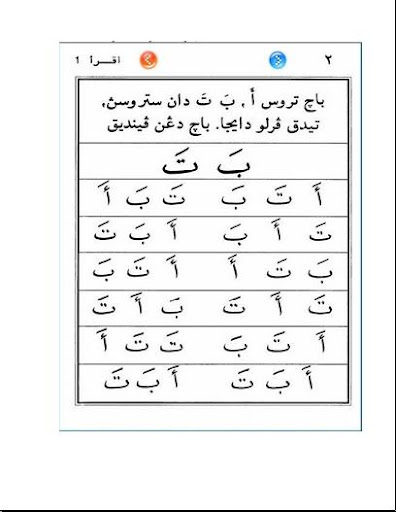 ٢ اقــرأ 1
باچ تروس أَ , بَ تَ دان ستروسڽ,
تيدق ڤرلو دايجا. باچ دڠن ڤينديق
بَ تَ
أَ تَ بَ تَ بَ أَ
تَ أَ بَ أَ بَ تَ
بَ تَ أَ أَ تَ بَ
تَ أَ تَ بَ أَ تَ
أَ تَ بَ تَ تَ أَ
أَ بَ تَ أَ بَ تَ